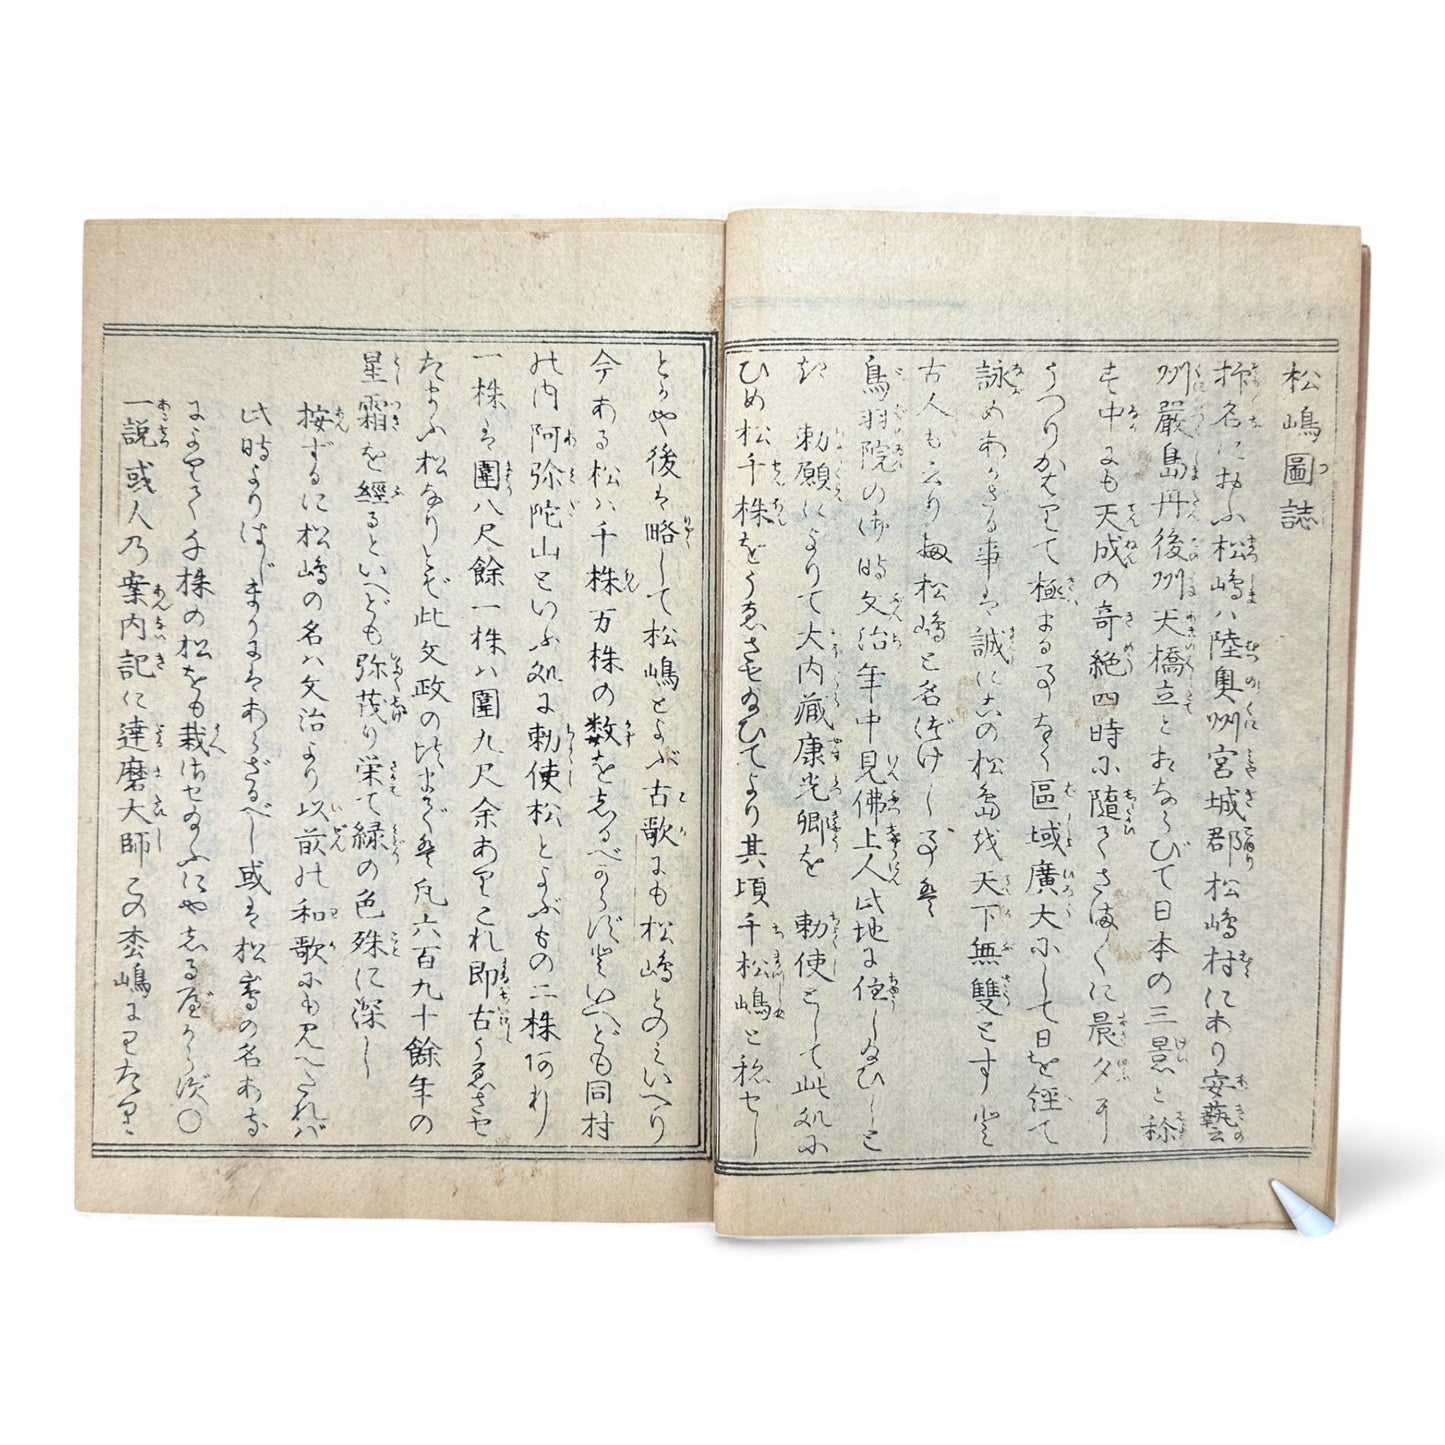 松嶋圖誌
抑名におふ松嶋ハ陸奥州宮城郡松嶋村にあり安藝の
州嚴島丹後州天橋立とおならびて日本の三景と称
す中にも天成の奇絶四時に隨てさま〳〵に晨夕に
うつりかはりて極まる事なく區域廣大にして日を經て
詠めあかざる事は誠にこの松島を天下無雙とす
古人も云り松嶋と名づけし事は
鳥羽院の御時文治年中見佛上人此地に住しゐひしを
勅願によりて大内藏康光卿を 勅使として此処に
ひめ松千株をうゑさせゐひてより其頃千松嶋と称せし
とかや後は略して松嶋とよぶ古歌にも松嶋とのミいへり
今ある松ハ千株万株の数をしるべからずといへども同村
の内阿弥陀山といふ処に勅使松とよぶもの二株あり
一株は圍八尺餘一株ハ圍九尺余ありこれ即古うゑさせ
たまふ松なりとぞ此文政の頃まで凡六百九十餘年の
星霜を經るといへども弥茂り栄て緑の色殊に深し
按ずるに松嶋の名ハ文治より以前の和歌にも見へたれバ
此時よりはじまりにはあらざるべし或は松嶌の名あるに
よりて千株の松をも栽させゐふにやしるべからず〇
一説或人乃案内記に達磨大師この松嶋にわたり